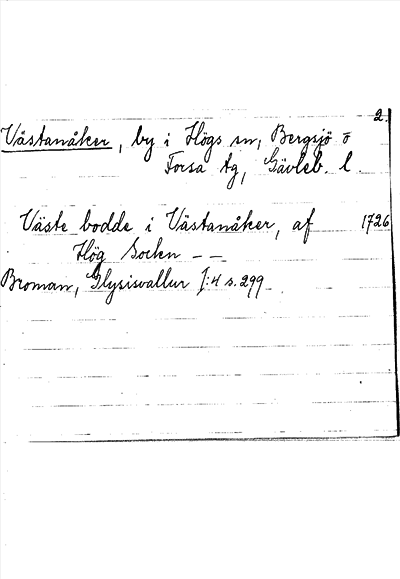 2.
Västanåker, by i Högs sn, Bergsjö o
Forsa tg, Gävleb. l.
Väste bodde i Västanåker, af 1726
Hög Socken - -
Broman, Glysisvallur I:4 s. 299